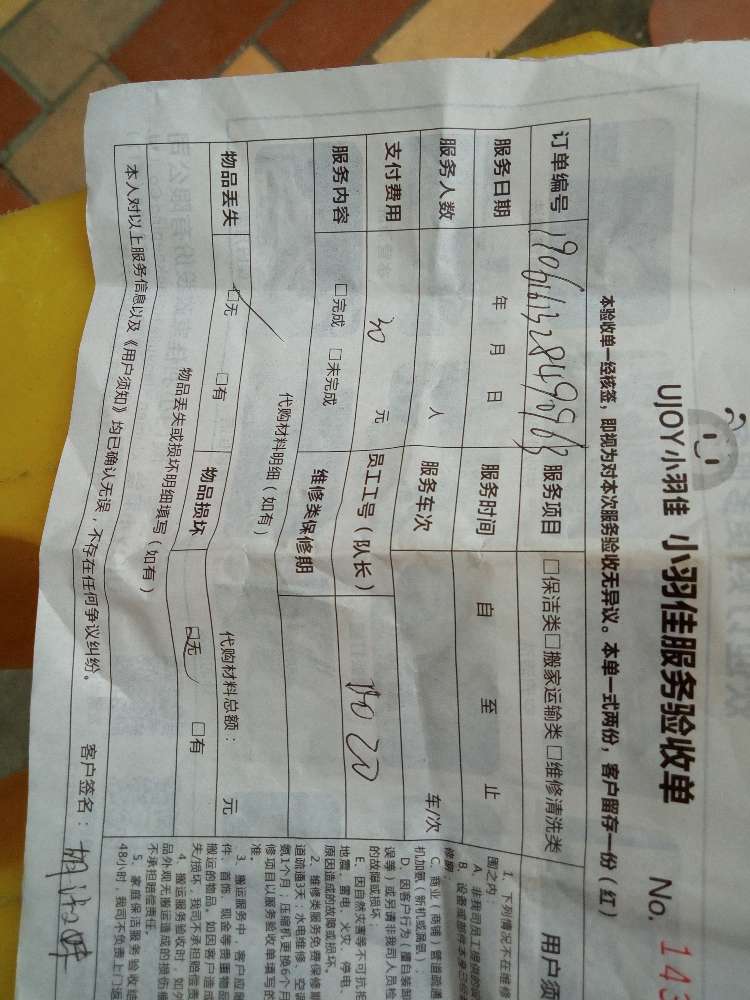 UJOY小羽佳 小羽佳服务验收单
No. 143
本验收单一经核签，即视为对本次服务验收无异议。本单一式两份，客户留存一份（红）
订单编号 服务项目 □保洁类□搬家运输类□维修清洗类
服务日期 年 月 日 服务时间 自 至 止
服务人数 人 服务车次 车/次
支付费用 30 元 员工工号（队长）
服务内容 □完成 □未完成 维修类保修期
代购材料明细（如有） 代购材料总额： 元
物品丢失 □无 □有 物品损坏 □无 □有
物品丢失或损坏明细填写（如有）
本人对以上服务信息以及《用户须知》均已确认无误，不存在任何争议纠纷。 客户签名：
用户须
1、下列情况不在维修
围之内：
A、非我司员工提供的
C、商业（商铺）管道疏通
机加氨（新机或漏氨）
D、因客户行为（擅自装卸
误等）或另请非我司人员检
的故障或损坏；
E、因自然灾害等不可抗拒
地震、雷电、火灾、停电、
原因造成的故障或损坏。
2、维修类服务免费保修期
道疏通3天；水电维修、空调
氨1个月；压缩机更换6个月
修项目以服务验收单填写的
准。
3、搬运服务中，客户应
件、首饰、现金等贵重物品
搬运的物品。如因客户造成
失/损坏，我司不承担赔偿责
4、搬运服务验收时，如外
品外观无搬运造成的损伤
不承担赔偿责任。
5、家庭保洁服务验收
48小时，我司不负责上门返